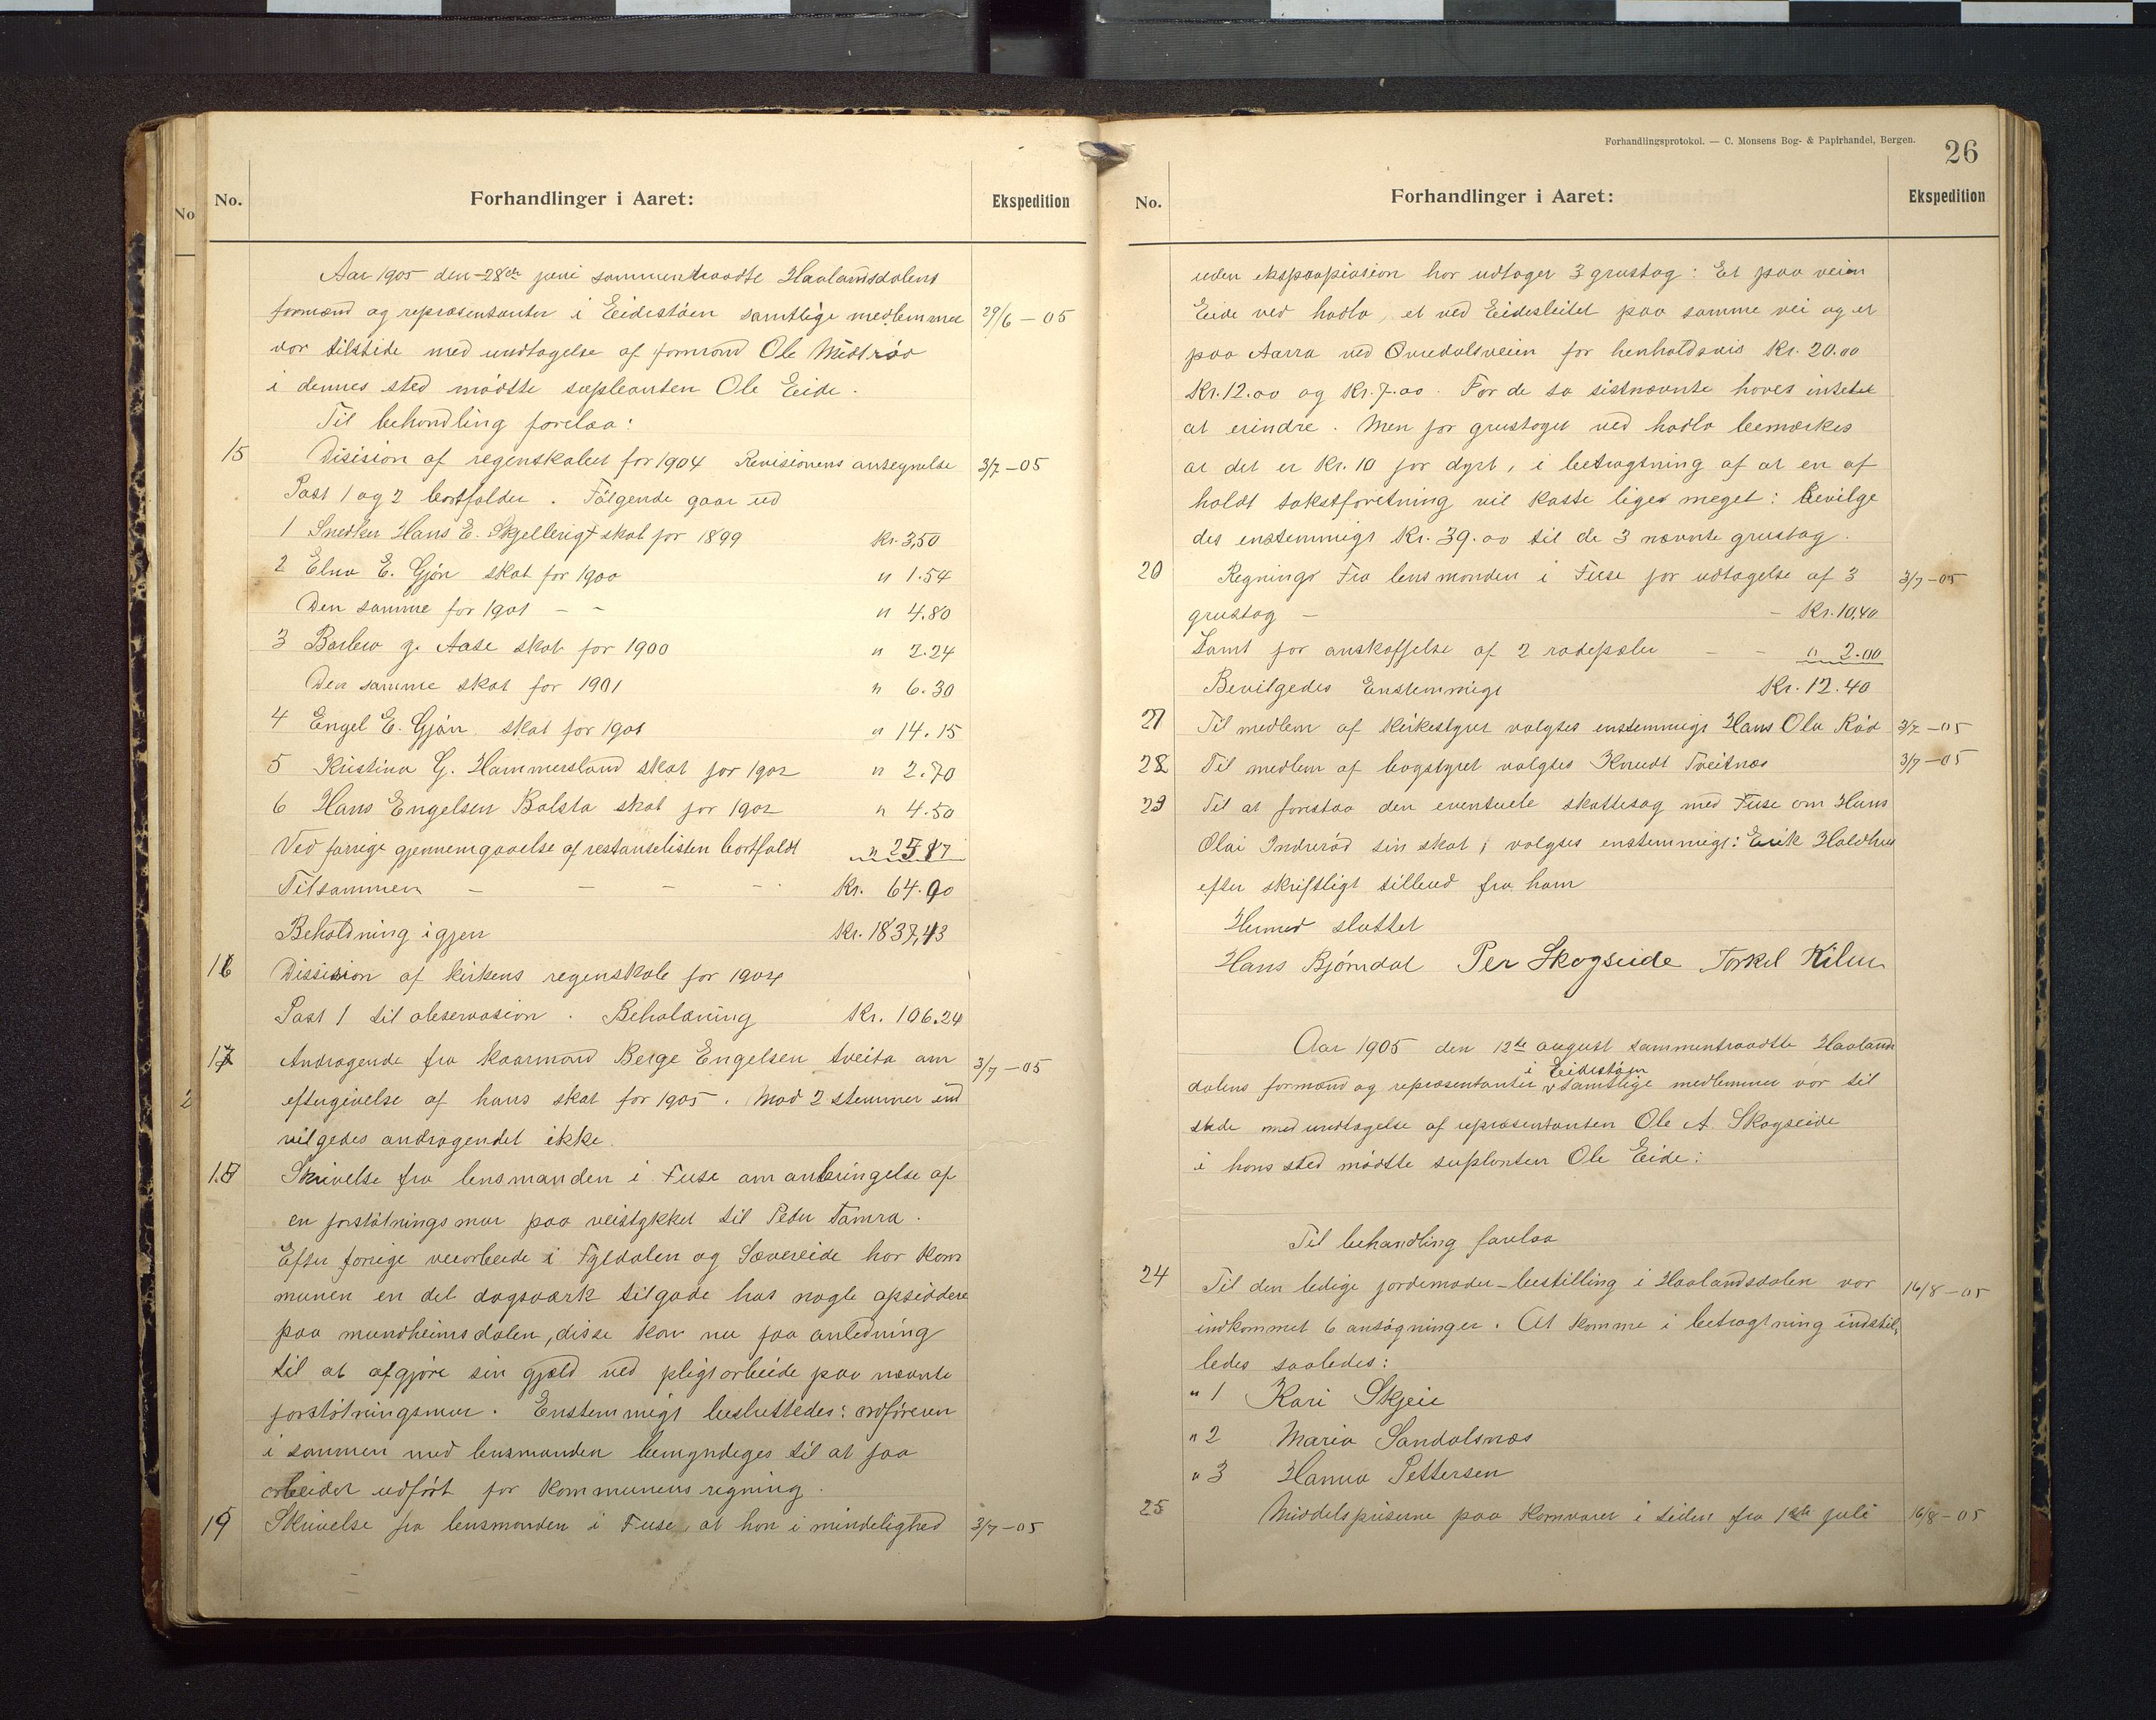 No
2
No.
Forhandlinger i Aaret:
Ekspedition
Aar 1905 den 28de juni sammentraadte Haalandsdalens
formænd og repræsentanter i Eidestöen samtlige medlemmer 29/6 - 05
var tilstede med undtagelse af formand Ole Midtråd
i dennes sted mödte supleanten Ole Eide.
Til behandling forelaa:
15 Disision af regenskabet for 1904 Revisionens antegnelse 3/7 - 05
Post 1 og 2 bortfalder. Fölgende gaar ud
1 Snedker Hans E. skat for 1899 Kr. 3,50
2 Elna E. Gjön skat for 1900 " 1.54
Den samme for 1901 - - " 4.80
3 g. Aase skat for 1900 " 2.24
Den samme skat for 1901 " 6.30
4 Engel E. Gjön skat for 1901 " 14.15
5 Kristina G. Hammersland skat for 1902 " 2.70
6 Hans Engelsen Bolsta skat for 1902 " 4.50
Ved forrige gjennemgaaelse af restanselisten bortfaldt " 25.17
Tilsammen - - - - Kr. 64.90
Beholdning igjen Kr. 1837,43
16 Dissision af kirkens regenskab for 1904
Post 1 til observasion. Beholdning Kr. 106.24
17 Andragende fra kaarmand Berge Engelsen Tveita om 3/7 - 05
eftergivelse af hans skat for 1905. Mod 2 stemmer ind
vilgedes andragendet ikke.
18 Skrivelse fra lensmanden i Fuse om anbringelse af
en forstötningsmur paa veistykket til Peder Tamra.
Efter forrige veiarbeide i Fyldalen og Sævereide har kom
munen en del dagsværk tilgode hos nogle opsiddere
paa mundheimsdalen, disse kan nu faa anledning
til at afgjöre sin gjæld ved pligtarbeide paa nævnte
forstötningsmur. Enstemmigt besluttedes: ordföreren
i sammen med lensmanden bemyndiges til at faa
arbeidet udfört for kommunens regning.
19 Skrivelse fra lensmanden i Fuse, at han i mindelighed 3/7 - 05
Forhandlingsprotokol. — C. Monsens Bog- & Papirhandel, Bergen.
26
No.
Forhandlinger i Aaret:
Ekspedition
uden ekspropiasion har udtaget 3 grustag: Et paa veien
Eide ved hadla, et ved Eidesleitet paa samme vei og et
paa Aarra ved Övredalsveien for henholdsvis Kr. 20.00
Kr. 12.00 og Kr. 7.00. For de to sistnævnte haves intetet
at erindre. Men for grustaget ved hadla bemærkes
at det er Kr. 10 for dyrt, i betragtning af at en af
holdt takstforretning vil koste liges meget: Bevilge
des enstemmigt Kr. 39.00 til de 3 nævnte grustag.
20 Regninger Fra lensmanden i Fuse for udtagelse af 3 3/7 - 05
grustag - - Kr. 10,40
Samt for anskaffelse af 2 rodepæler - - " 2.00
Bevilgedes Enstemmigt Kr. 12.40
21 Til medlem af kirkestyret valgtes enstemmigt Hans Ola Röd 3/7 - 05
22 Til medlem af bogstyret valgtes Knudt Tveitnæs 3/7 - 05
23 Til at forestaa den eventuele skattesag med Fuse om Hans
Olai Indreröd sin skat, valgtes enstemmigt: Erik Holdhus
efter skriftligt tilbud fra ham
Hermed sluttet
Hans Björndal Per Skogseide Torkel Kilen
Aar 1905 den 12te august sammentraadte Haalands
dalens formænd og repræsentanter i Eidestöen samtlige medlemmer var til
stede med undtagelse af repræsentanten Ole A. Skogseide
i hans sted mödte suplanten Ole Eide:
Til behandling forelaa
24 Til den ledige jordemoder-bestilling i Haalandsdalen var 16/8 - 05
indkommet 6 ansögninger. At komme i betragtning indstil,
ledes saaledes:
" 1 Kari Skjeie
" 2 Maria Sandalsnæs
" 3 Hanna Pettersen
25 Middelspriserne paa kornvarer i tiden fra 1ste juli 16/8 - 05